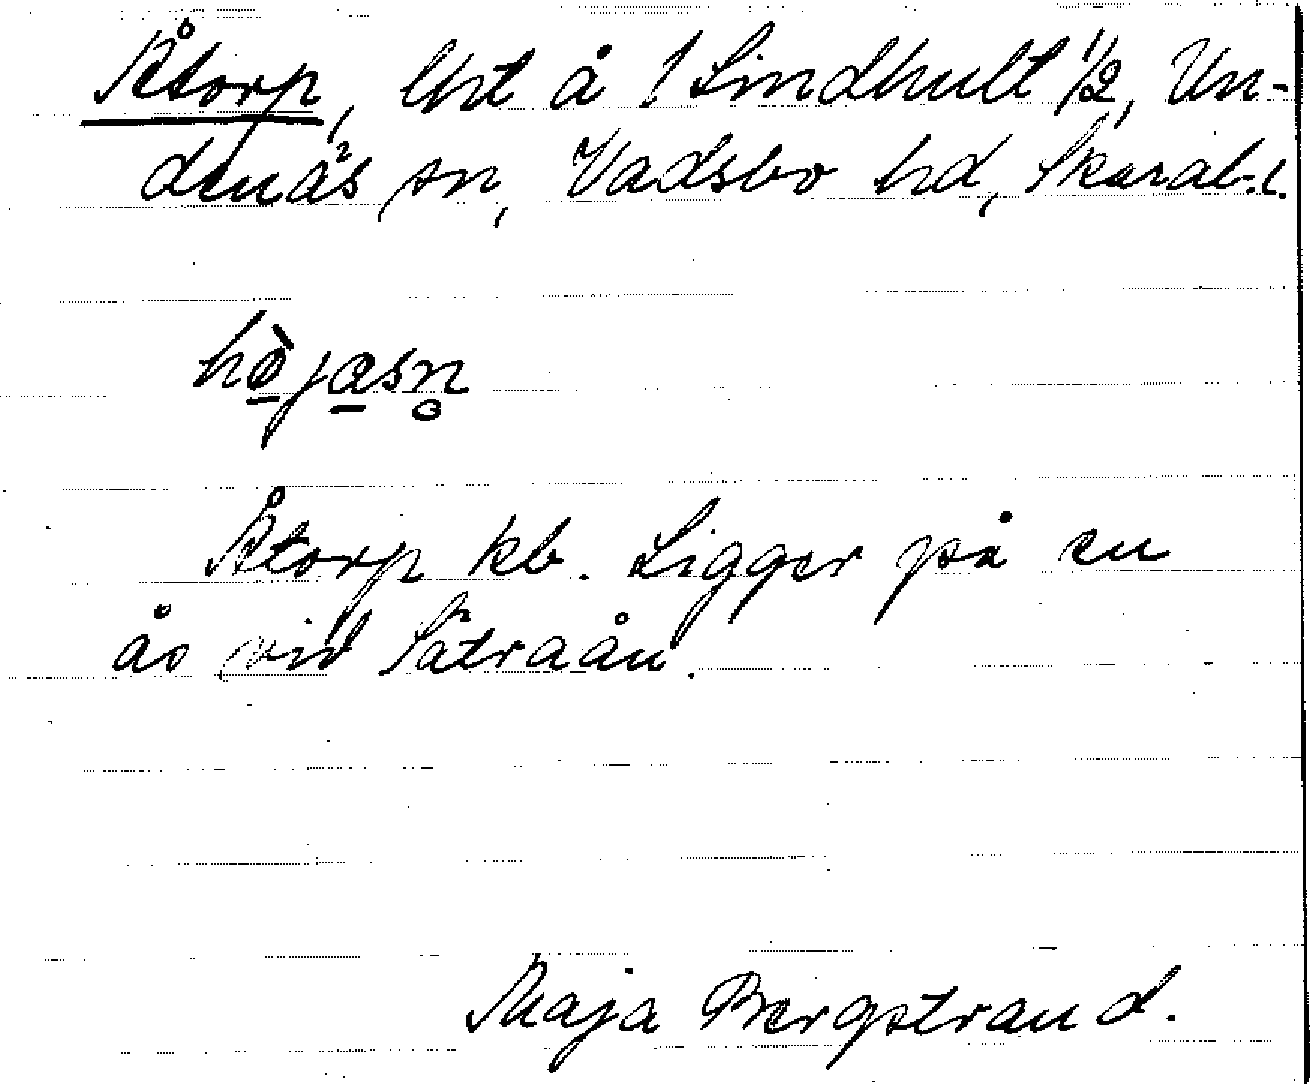 Åtorp, lht å 1 Lindhult 1/2, Un-
denäs sn, Vadsbo hd, Skarab.l.
hø̠̀ja̠sn̥
Åtorp kb. Ligger på en
ås vid Sätraån.
Maja Bergstrand.